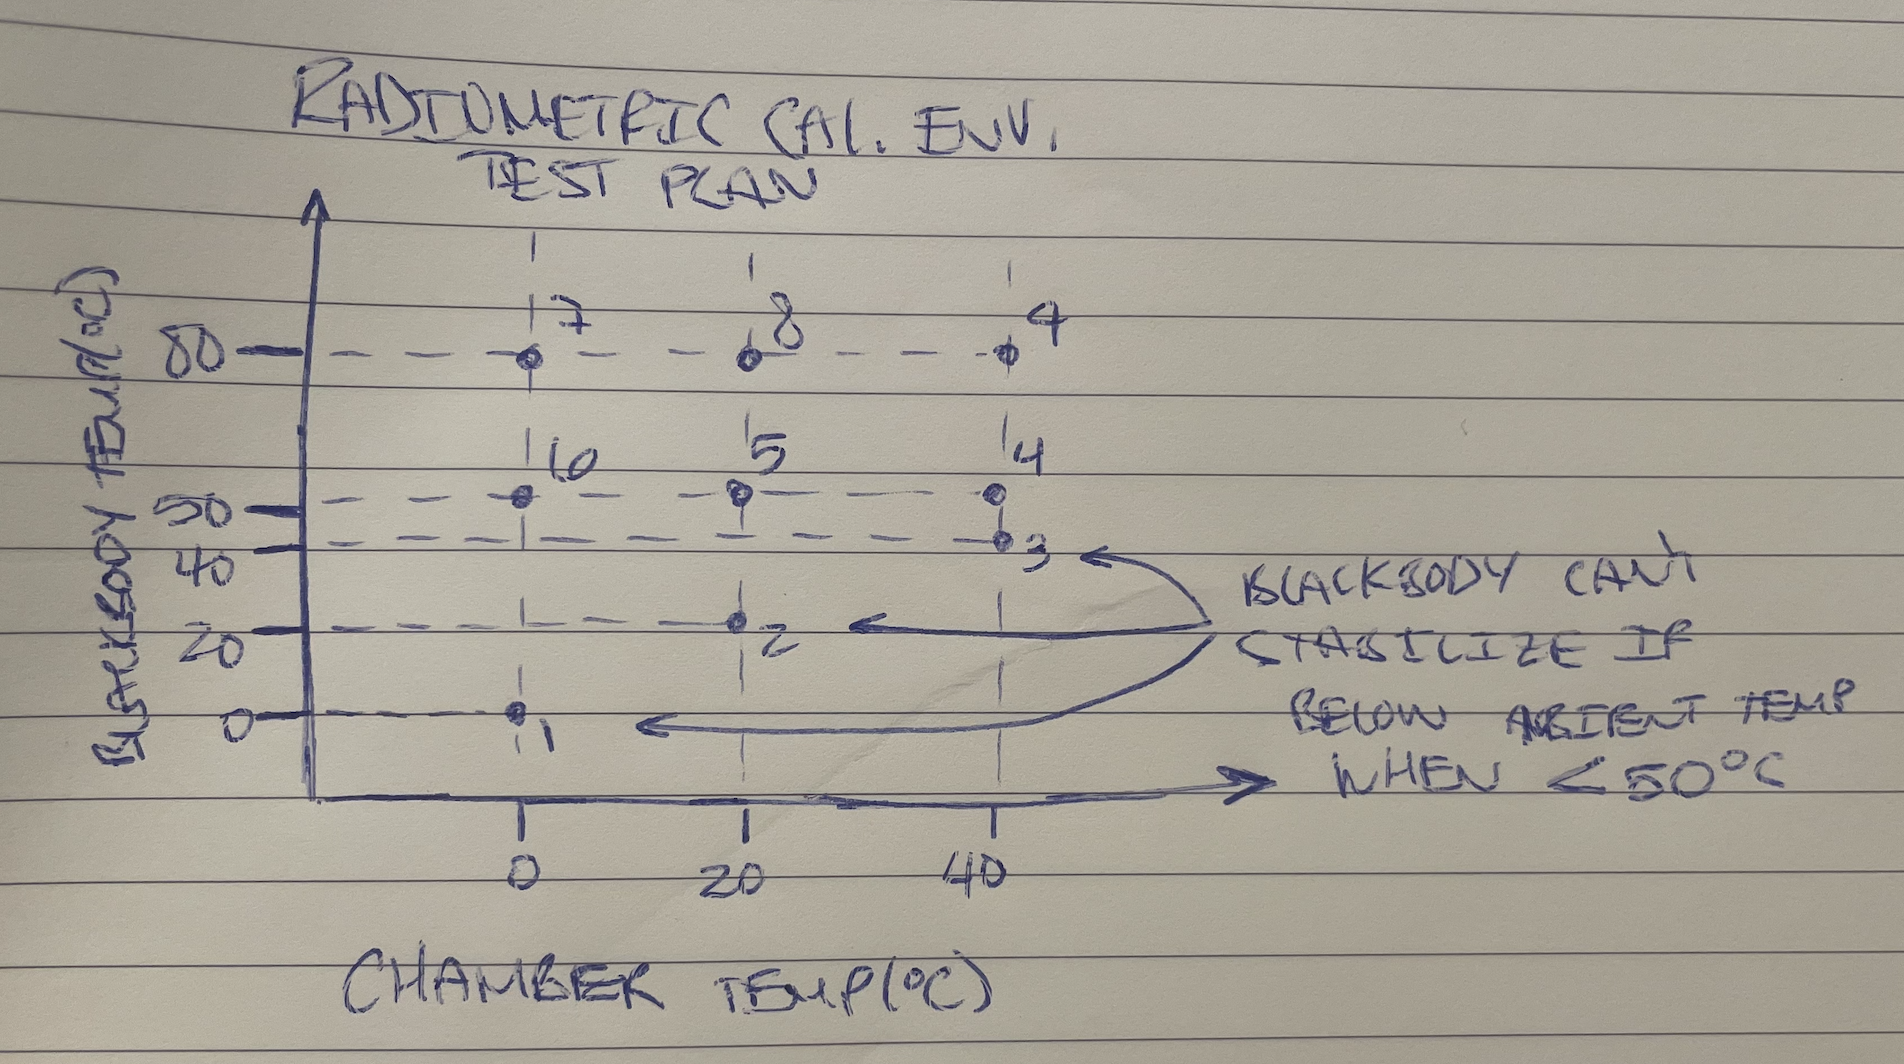 RADIOMETRIC CAL. ENV.
TEST PLAN
BLACKBODY TEMP(°C)
80
50
40
20
0
7 8 9
6 5 4
3
2
1
BLACKBODY CAN'T
STABILIZE IF
BELOW AMBIENT TEMP
WHEN <50°C
0 20 40
CHAMBER TEMP(°C)